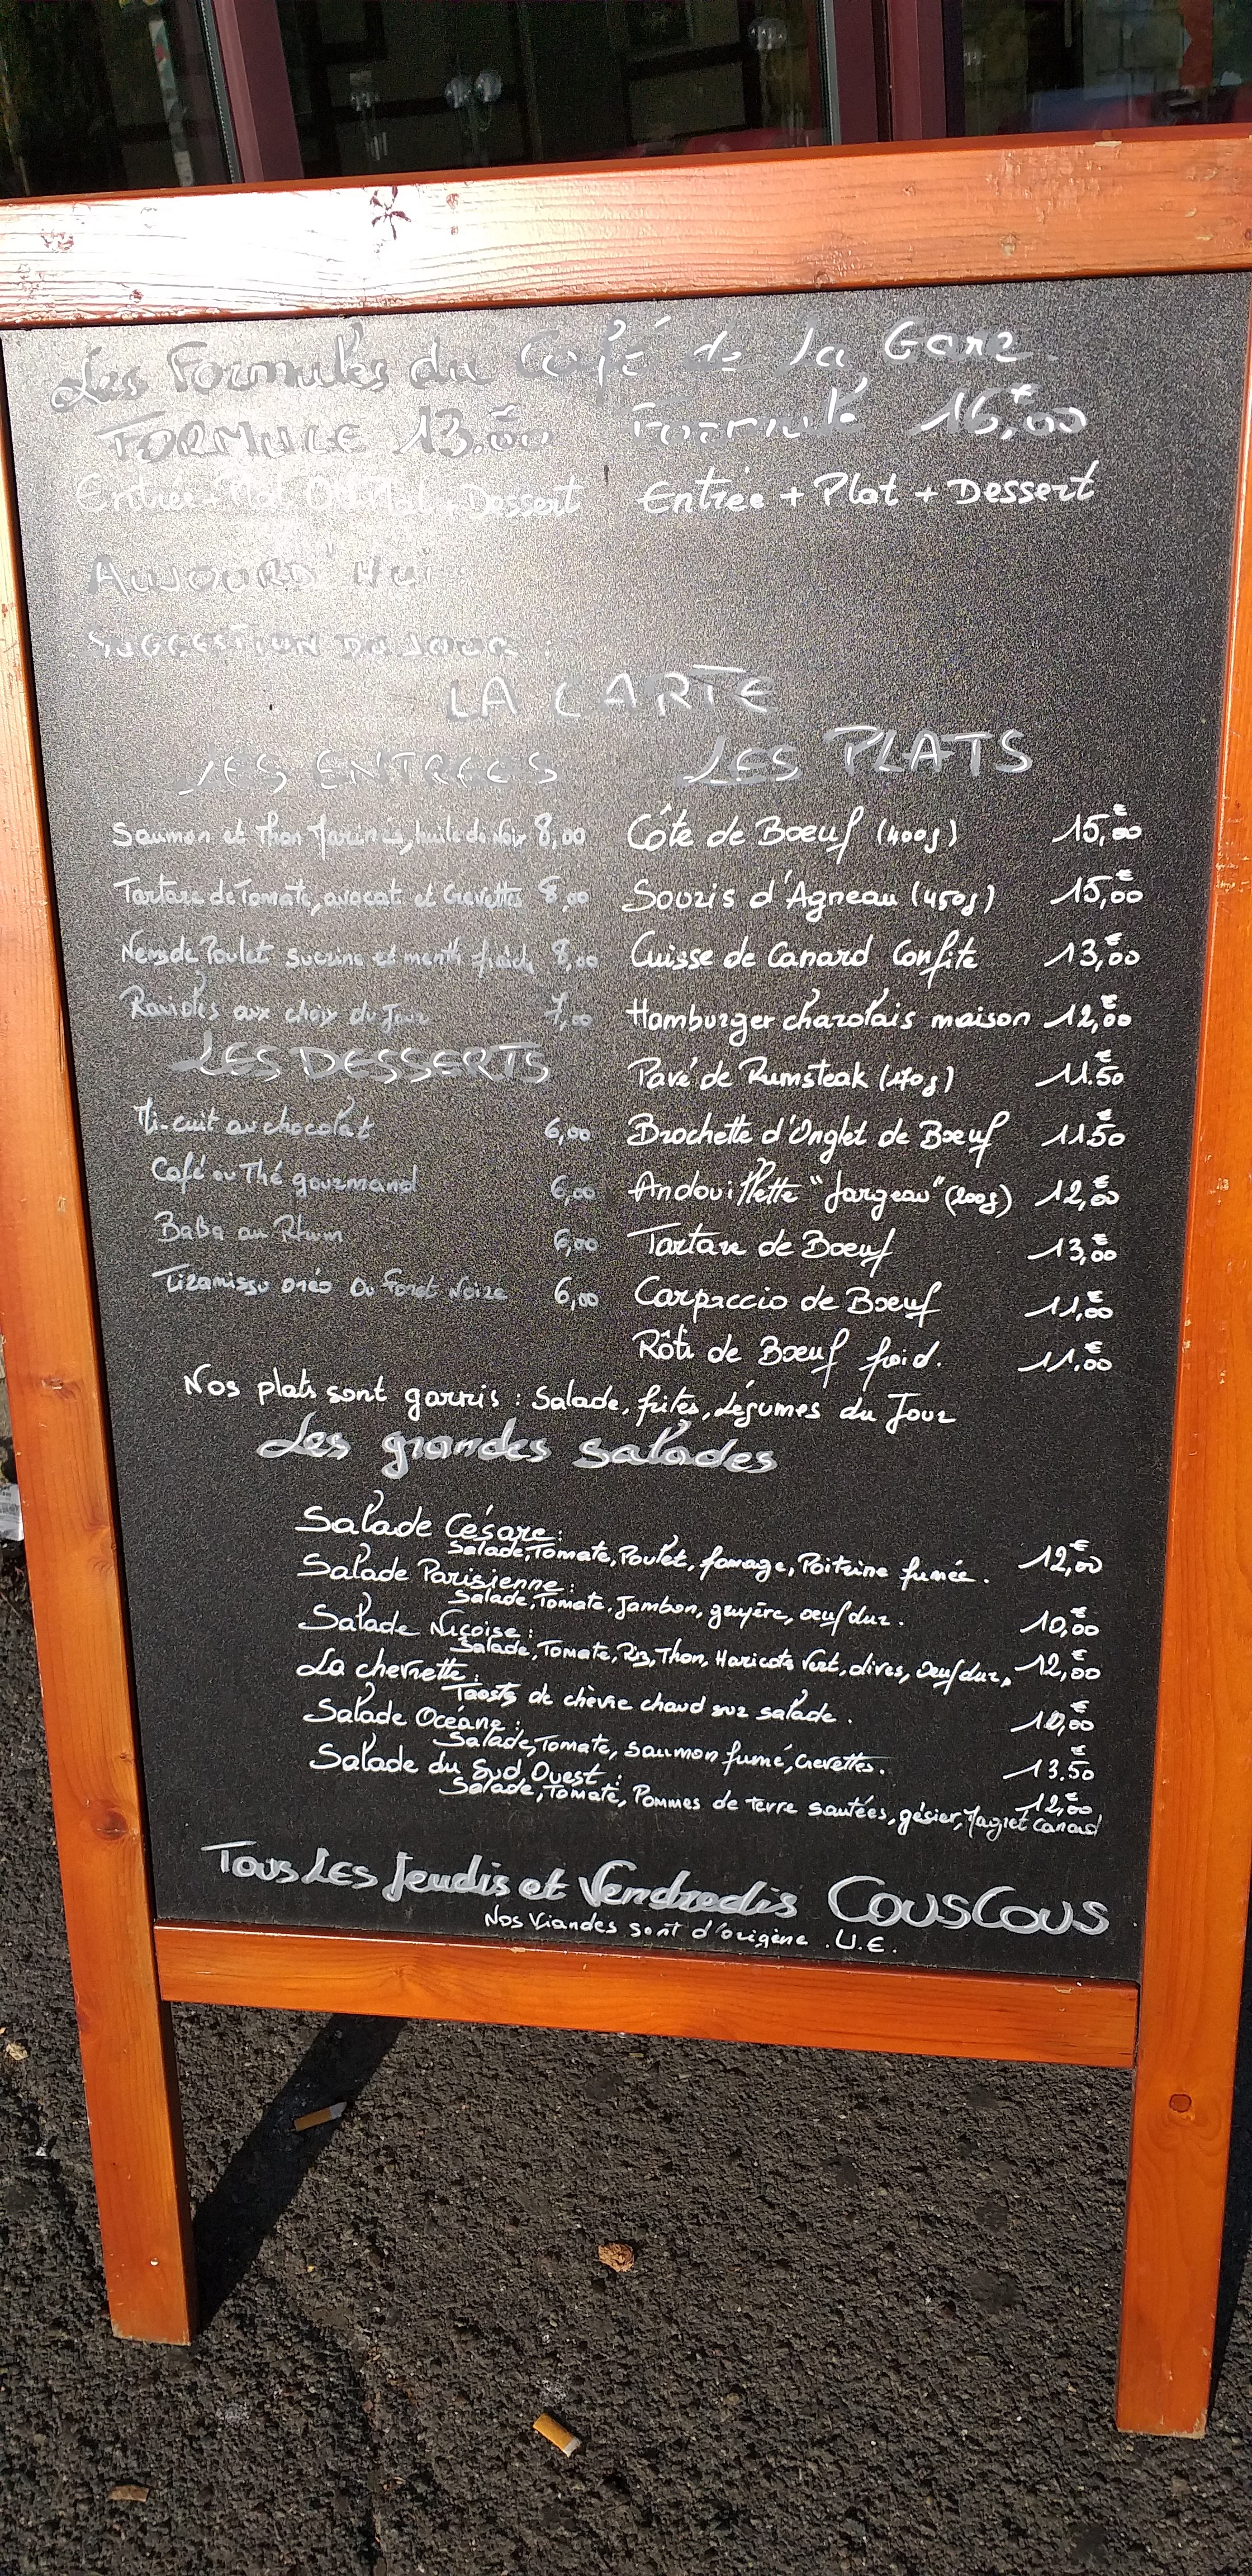 Les Formules du Café de La Gare
FORMULE 13.00 Formule 16,00€
Entrée + Plat OU Plat + Dessert Entrée + Plat + Dessert
AUJOURD'HUI :
SUGGESTION DU JOUR :
LA CARTE
LES ENTREES
Saumon et Thon marinés, huile de Noix 8,00
Tartare de Tomate, avocat et Crevettes 8,00
Nems de Poulet sucrine et menthe fraîche 8,00
Ravioles aux choix du Jour 7,00
LES DESSERTS
Mi-cuit au chocolat 6,00
Café ou Thé gourmand 6,00
Baba au Rhum 6,00
Tiramissu oréo Ou Foret Noire 6,00
LES PLATS
Côte de Boeuf (400g) 15,00€
Souris d'Agneau (450g) 15,00€
Cuisse de Canard Confite 13,00€
Hamburger charolais maison 12,00€
Pavé de Rumsteak (170g) 11.50€
Brochette d'Onglet de Boeuf 11.50€
Andouillette "Jargeau" (200g) 12,00€
Tartare de Boeuf 13,00€
Carpaccio de Boeuf 11,00€
Rôti de Boeuf froid. 11.00€
Nos plats sont garnis : Salade, frites, Légumes du Jour
Les grandes salades
Salade Césare :
Salade, Tomate, Poulet, fomage, Poitrine fumée. 12,00€
Salade Parisienne :
Salade, Tomate, Jambon, gruyère, oeuf dur. 10,00€
Salade Niçoise :
Salade, Tomate, Riz, Thon, Haricots Vert, olives, Oeuf dur. 12,00€
La chevrette :
Toasts de chèvre chaud sur salade. 10,00€
Salade Océane :
Salade, Tomate, saumon fumé, Crevettes. 13.50€
Salade du Sud Ouest : 12,00€
Salade, Tomate, Pommes de terre sautées, gésier, Magret Canard
Tous Les Jeudis et Vendredis COUSCOUS
Nos Viandes sont d'origine .U.E.